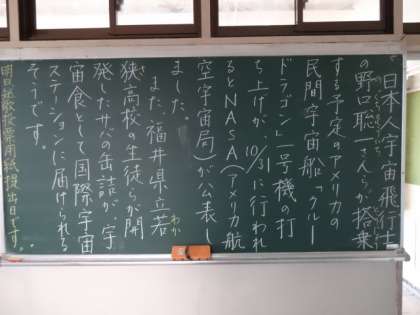 日本人宇宙飛行士
の野口聡一さんらが搭乗
する予定のアメリカの
民間宇宙船「クルー
ドラゴン」一号機の打
ち上げが、10/31に行われ
るとNASA(アメリカ航
空宇宙局)が公表し
ました。
また、福井県立若
わか
狭高校の生徒らが開
さ
発したサバの缶詰が、宇
宙食として国際宇宙
ステーションに届けられる
そうです。
明日投票用紙提出日です。